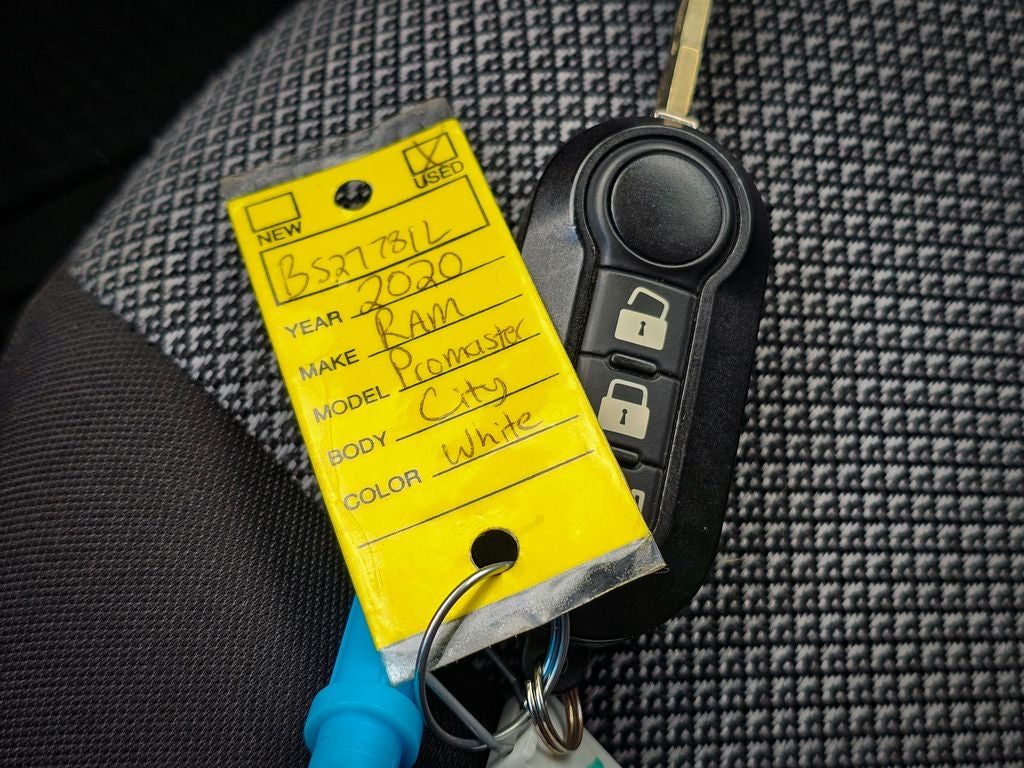 NEW USED
BS27781L
YEAR 2020
MAKE RAM
MODEL Promaster
BODY City
COLOR White